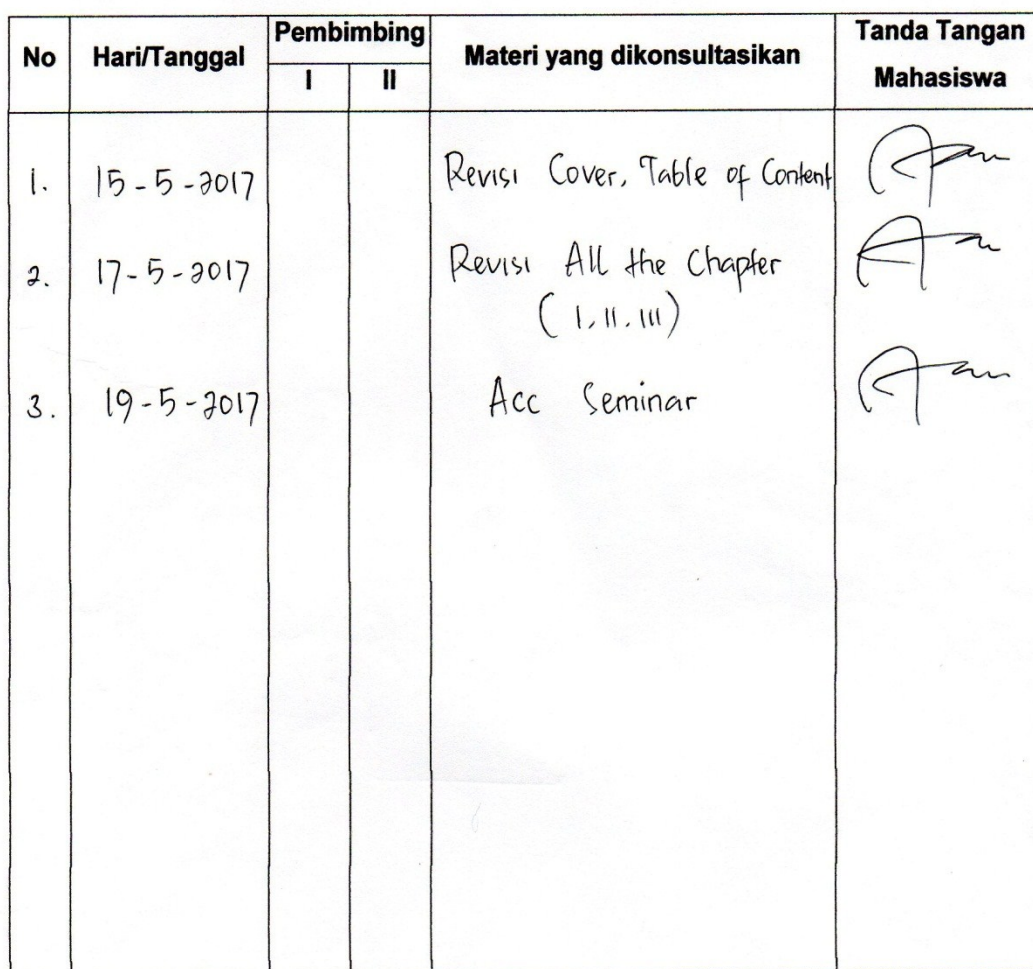 No Hari/Tanggal Pembimbing Materi yang dikonsultasikan Tanda Tangan
Mahasiswa
I II
1. 15-5-2017 Revisi Cover, Table of Content
2. 17-5-2017 Revisi All the Chapter
(I, II, III)
3. 19-5-2017 Acc Seminar